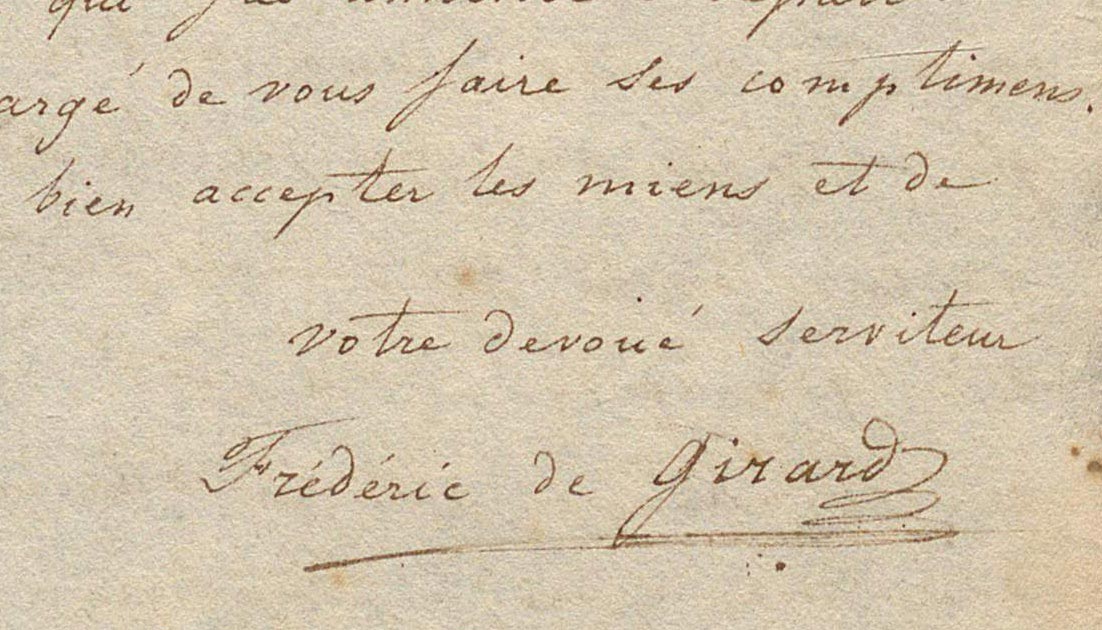 qui
argé de vous faire ses complimens.
bien accepter les miens et de
votre devoué serviteur
Frédéric de Girard